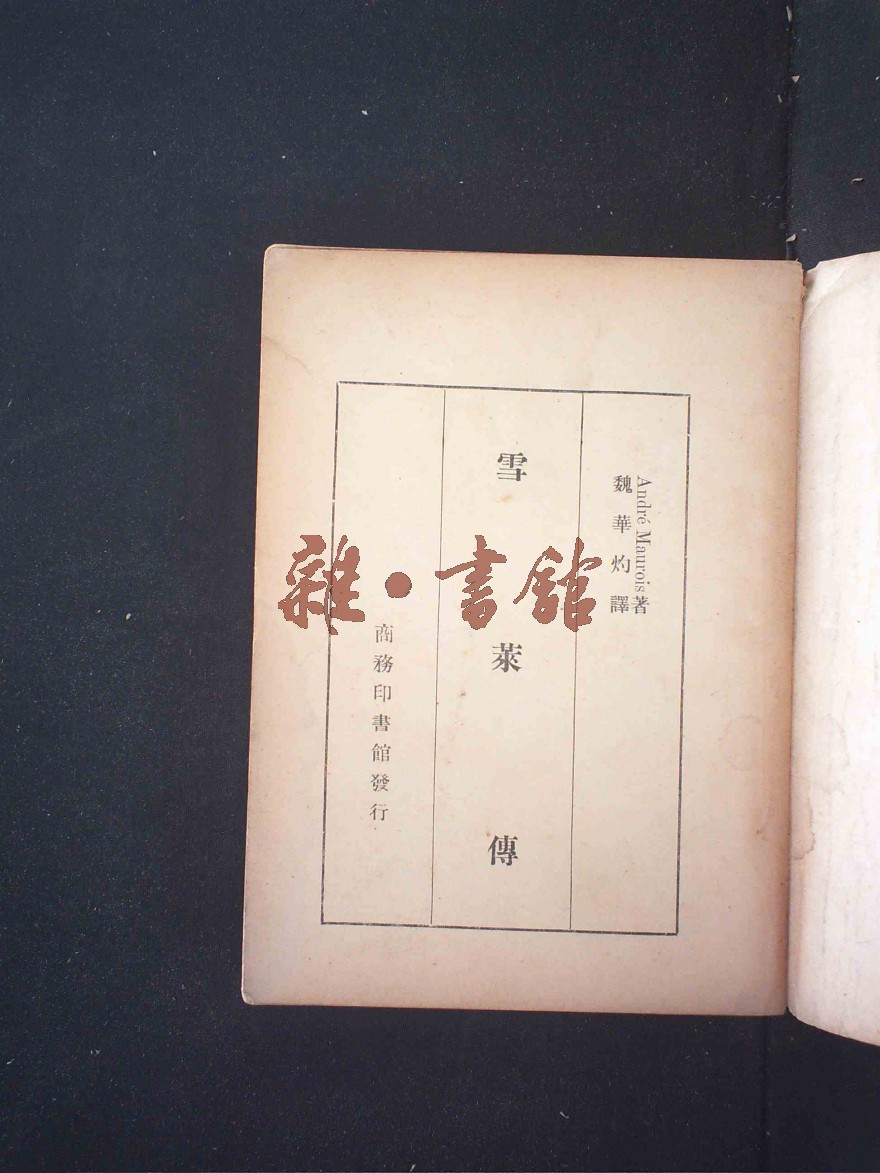 André Maurois著
魏華灼譯
雪萊傳
商務印書館發行
雜·書館